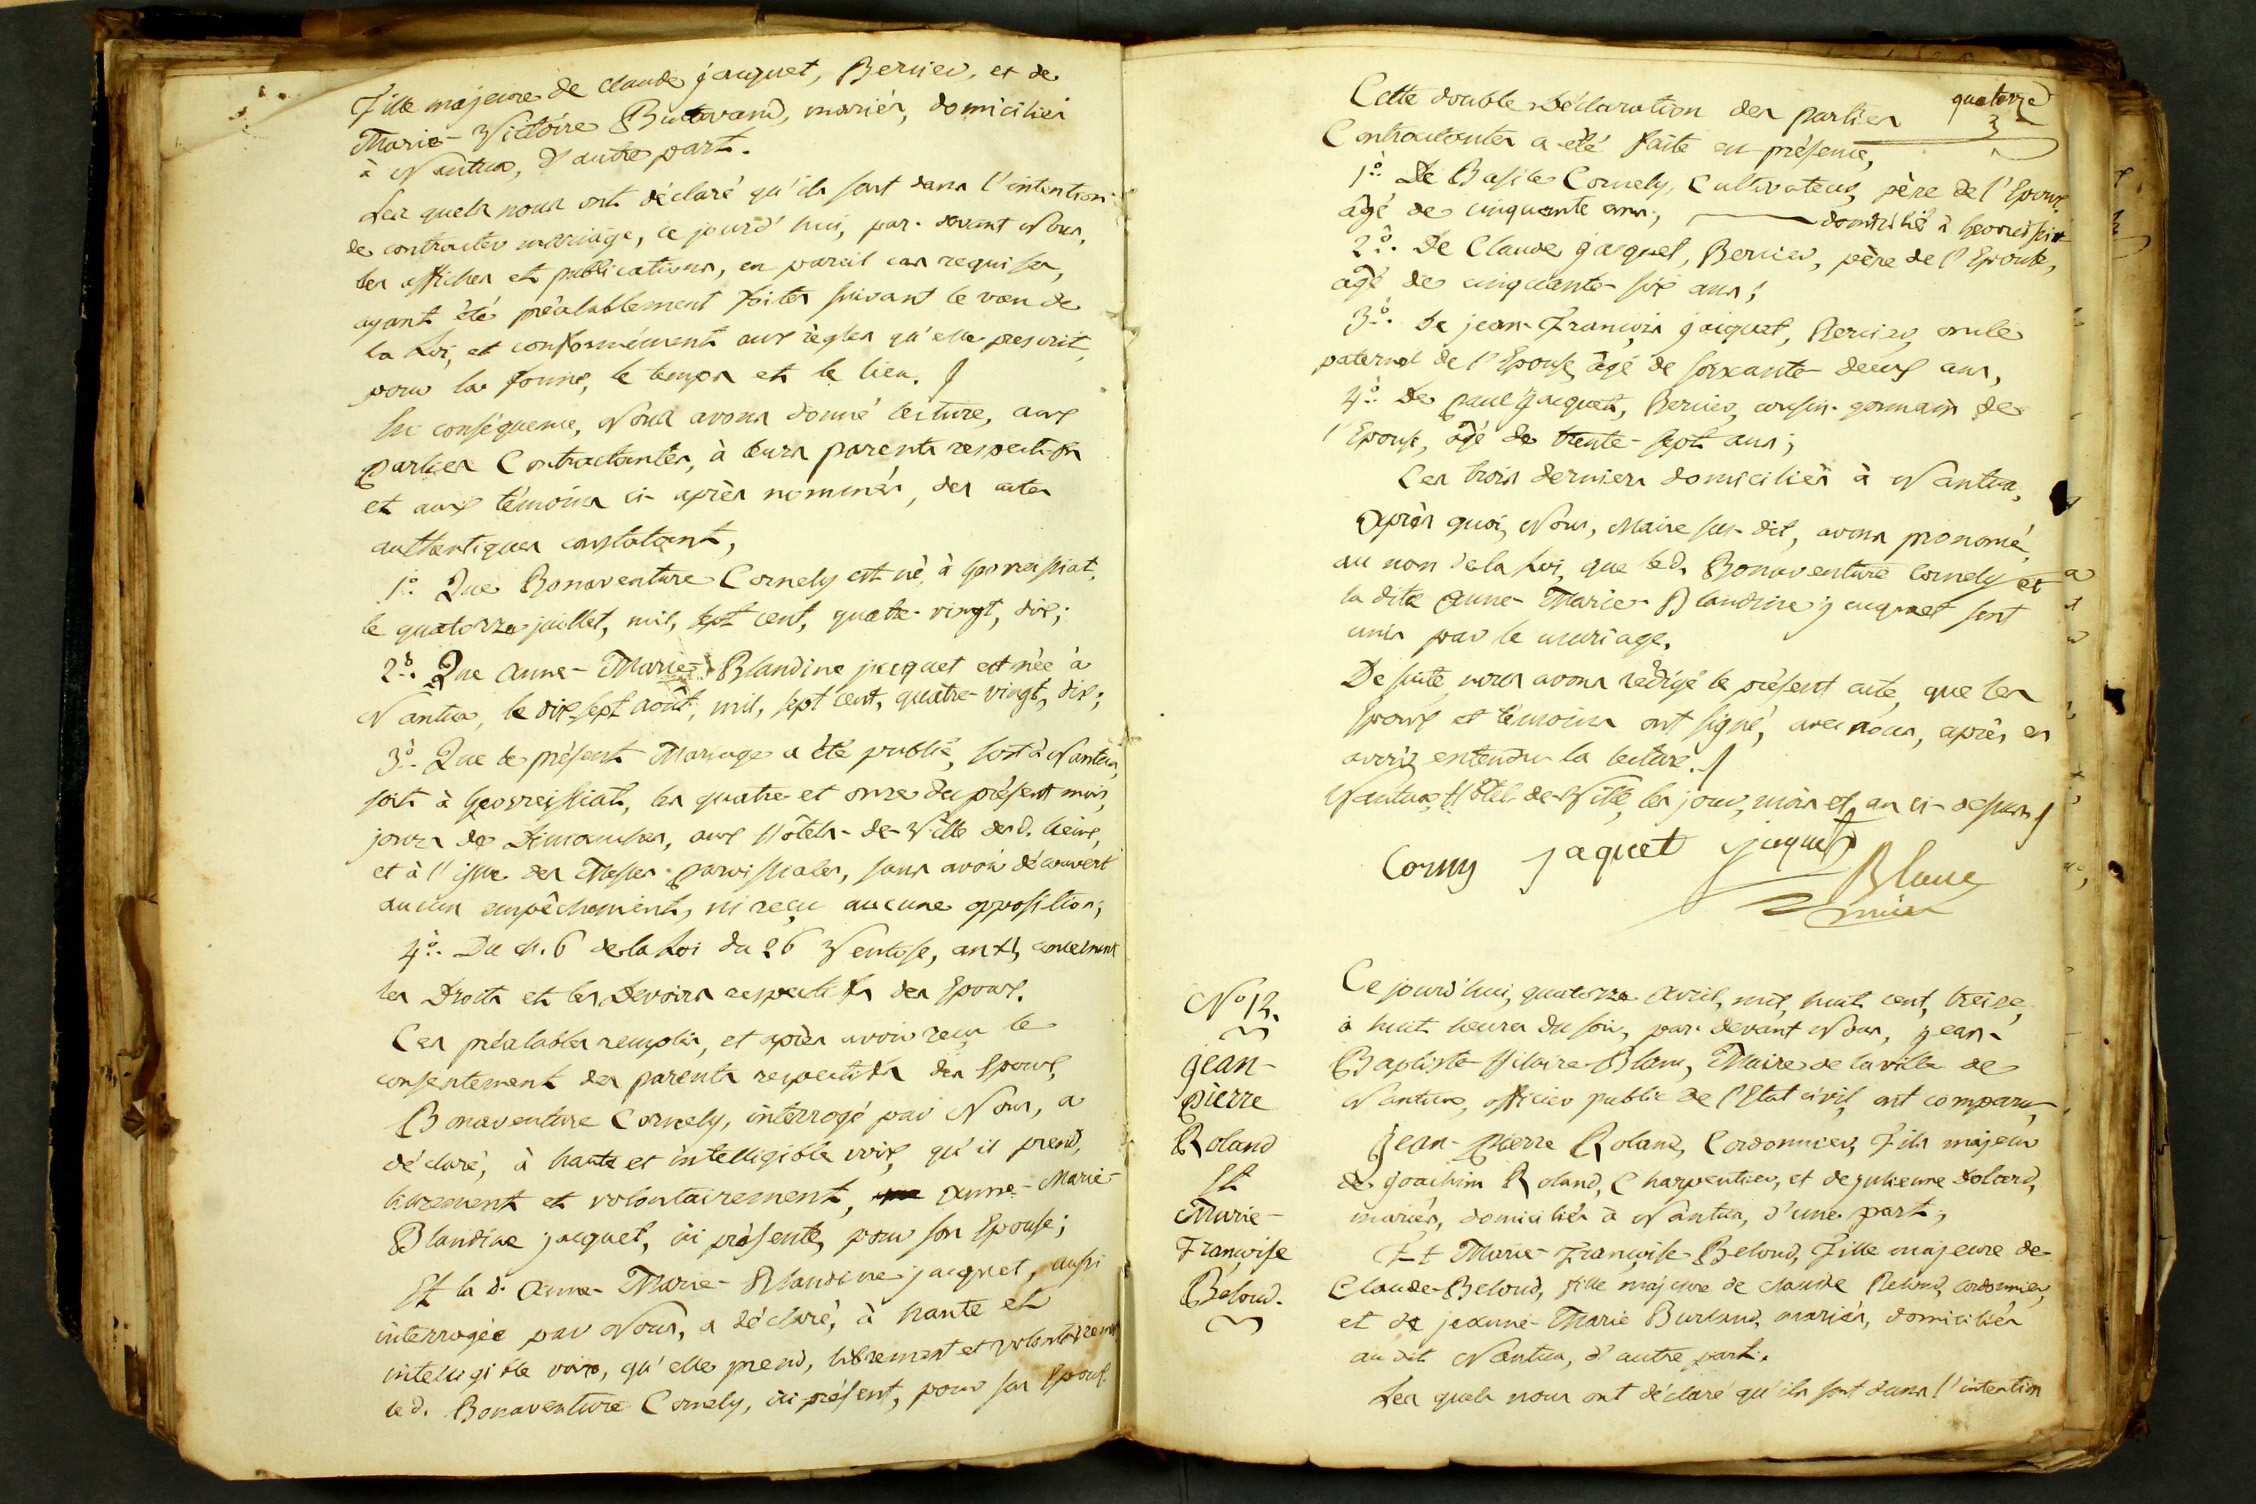 Fille majeure de Claude jacquet, Bercier, et de
Marie-Victoire Butavand, mariés, domiciliés
à Nantua, d'autre part.
Les quels nous ont déclaré qu'ils sont dans l'intention
de contracter mariage, ce jourd'hui, par-devant Nous,
les affiches et publications, en pareil cas requises,
ayant été préalablement faites suivant le vœu de
la Loi, et conformément aux règles qu'elle prescrit,
pour la forme, le temps et le lieu.
En conséquence, Nous avons donné lecture, aux
parties Contractantes, à leurs parents respectifs
et aux témoins ci-après nommés, des actes
authentiques constatant,
1º. Que Bonaventure Cornely est né, à Geovreissiat,
le quatorze juillet, mil, sept cent, quatre-vingt, dix;
2º. Que Anne-Marie-Blandine jacquet est née à
Nantua, le dix-sept août, mil, sept cent, quatre-vingt, dix;
3º. Que le présent Mariage a été publié, soit à Nantua,
soit à Geovreissiat, les quatre et onze du présent mois,
jours de Dimanches, aux Hôtels-de-Ville des d. lieux,
et à l'issue des Messes paroissiales, sans avoir découvert
aucun empêchement, ni reçu aucune opposition;
4º. Du ch. 6 de la Loi du 26 Ventose, an XI, concernant
les Droits et les Devoirs respectifs des Epoux.
Ces préalables remplis, et après avoir reçu le
consentement des parents respectifs des Epoux,
Bonaventure Cornely, interrogé par Nous, a
déclaré, à haute et intelligible voix, qu'il prend,
librement et volontairement, Anne-Marie-
Blandine jacquet, ici présente, pour son Epouse;
Et la d. Anne-Marie-Blandine jacquet, aussi
interrogée par Nous, a déclaré, à haute et
intelligible voix, qu'elle prend, librement et volontairement
le d. Bonaventure Cornely, ici présent, pour son Epoux.
quatorze
Cette double Déclaration des parties
Contractantes a été faite en présence,
1º. De Basile Cornely, Cultivateur, père de l'Epoux,
âgé de cinquante ans, domicilié à Geovreissiat
2º. De Claude jacquet, Bercier, père de l'Epouse,
âgé de cinquante-six ans;
3º. De jean-François jacquet, Bercier, oncle
paternel de l'Epouse, âgé de soixante-deux ans,
4º. De paul Jacquet, Bercier, cousin-germain de
l'Epouse, âgé de trente-sept ans;
Les trois derniers domiciliés à Nantua,
Après quoi, Nous, Maire sus-dit, avons prononcé,
au nom de la Loi, que le d. Bonaventure Cornely et
la dite Anne-Marie-Blandine jacquet sont
unis par le mariage.
De suite, nous avons rédigé le présent acte, que les
Epoux et témoins ont signé, avec nous, après en
avoir entendu la lecture.
Nantua, Hôtel-de-Ville, les jour, mois et an ci-dessus
jaquet jaquet
Blanc
maire
Nº 12.
jean-
pierre
Roland
Et
Marie-
Françoise
Beloud.
Ce jourd'hui, quatorze avril, mil, huit cent, treize,
à huit heures du soir, par-devant Nous, jean-
Baptiste-Hilaire-Blanc, Maire de la ville de
Nantua, officier public de l'Etat civil, ont comparu,
Jean-Pierre Roland, Cordonnier, Fils majeur
de joachim Roland, Charpentier, et de julienne
mariés, domiciliés à Nantua, d'une part;
Et Marie-Françoise-Beloud, Fille majeure de
Claude-Beloud, fille majeure de claude Beloud, cordonnier,
et de jeanne-Marie Burland, mariés, domiciliés
au dit Nantua, d'autre part.
Les quels nous ont déclaré qu'ils sont dans l'intention